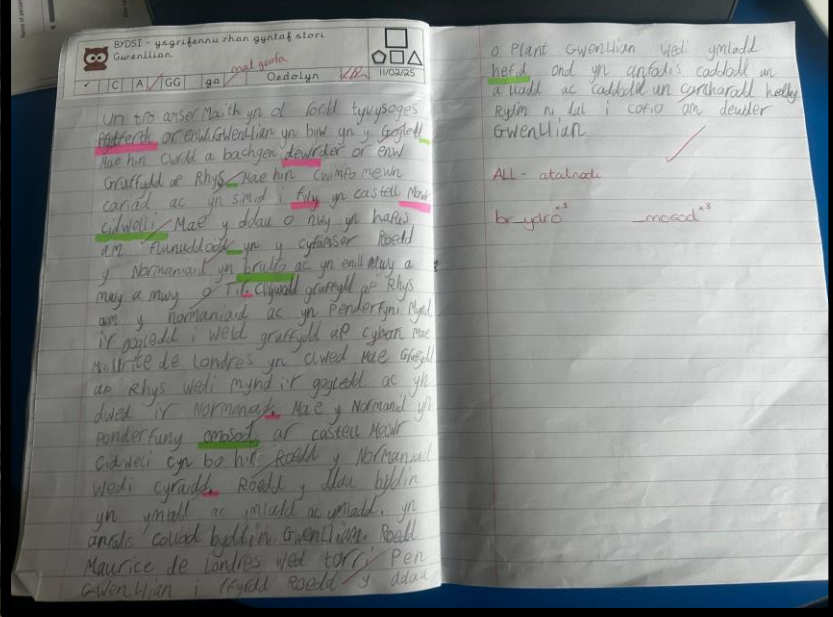 BYDSI - ysgrifennu rhan gyntaf stori
Gwenllian
mat geirfa
✓ C A GG ga Oedolyn 11/02/25
Un tro amser Maith yn ol roedd tywysoges
or enw Gwenllian yn byw yn y Gogledd
Mae hin Cwrdd a bachgen dewrder or enw
Gruffydd ap Rhys Mae hin Cwimpo mewn
cariad ac yn smid i fwy yn castell Mawr
cidwelli Mae y ddau o nwy yn hapus
am yn y cyfamser Roedd
y Normaniaid yn brulto ac yn enill mwy a
mwy a mwy o Tir. Clywodd gruffydd ap Rhys
am y normaniaid ac yn Penderfyni Mynd
ir gogledd i weld gruffydd ap cynan Mae
de Londres yn clwed Mae
ap Rhys wedi mynd i'r gogledd ac yn
dwed ir Mae y Normanid yn
Ponderfuny omosod ar castell Mawr
Cidweli cyn bo hir Roedd y Normaniaid
wedi cyradd. Roedd y ddau byddin
yn ymiall ac ymladd ac ymladd. yn
collod byddin Gwenllian. Roedd
Maurice de Londres wed torri Pen
Gwenllian i ffyrdd Roedd y ddau
o Plant Gwenllian wedi ymladd
hefd ond yn anfodis caddodd un
a lladd ac caddodd un carcharadd
Rydin ni lul i cofio am dewder
Gwenllian
ALL - atalnodi
br_ydro x3 _mosod x3